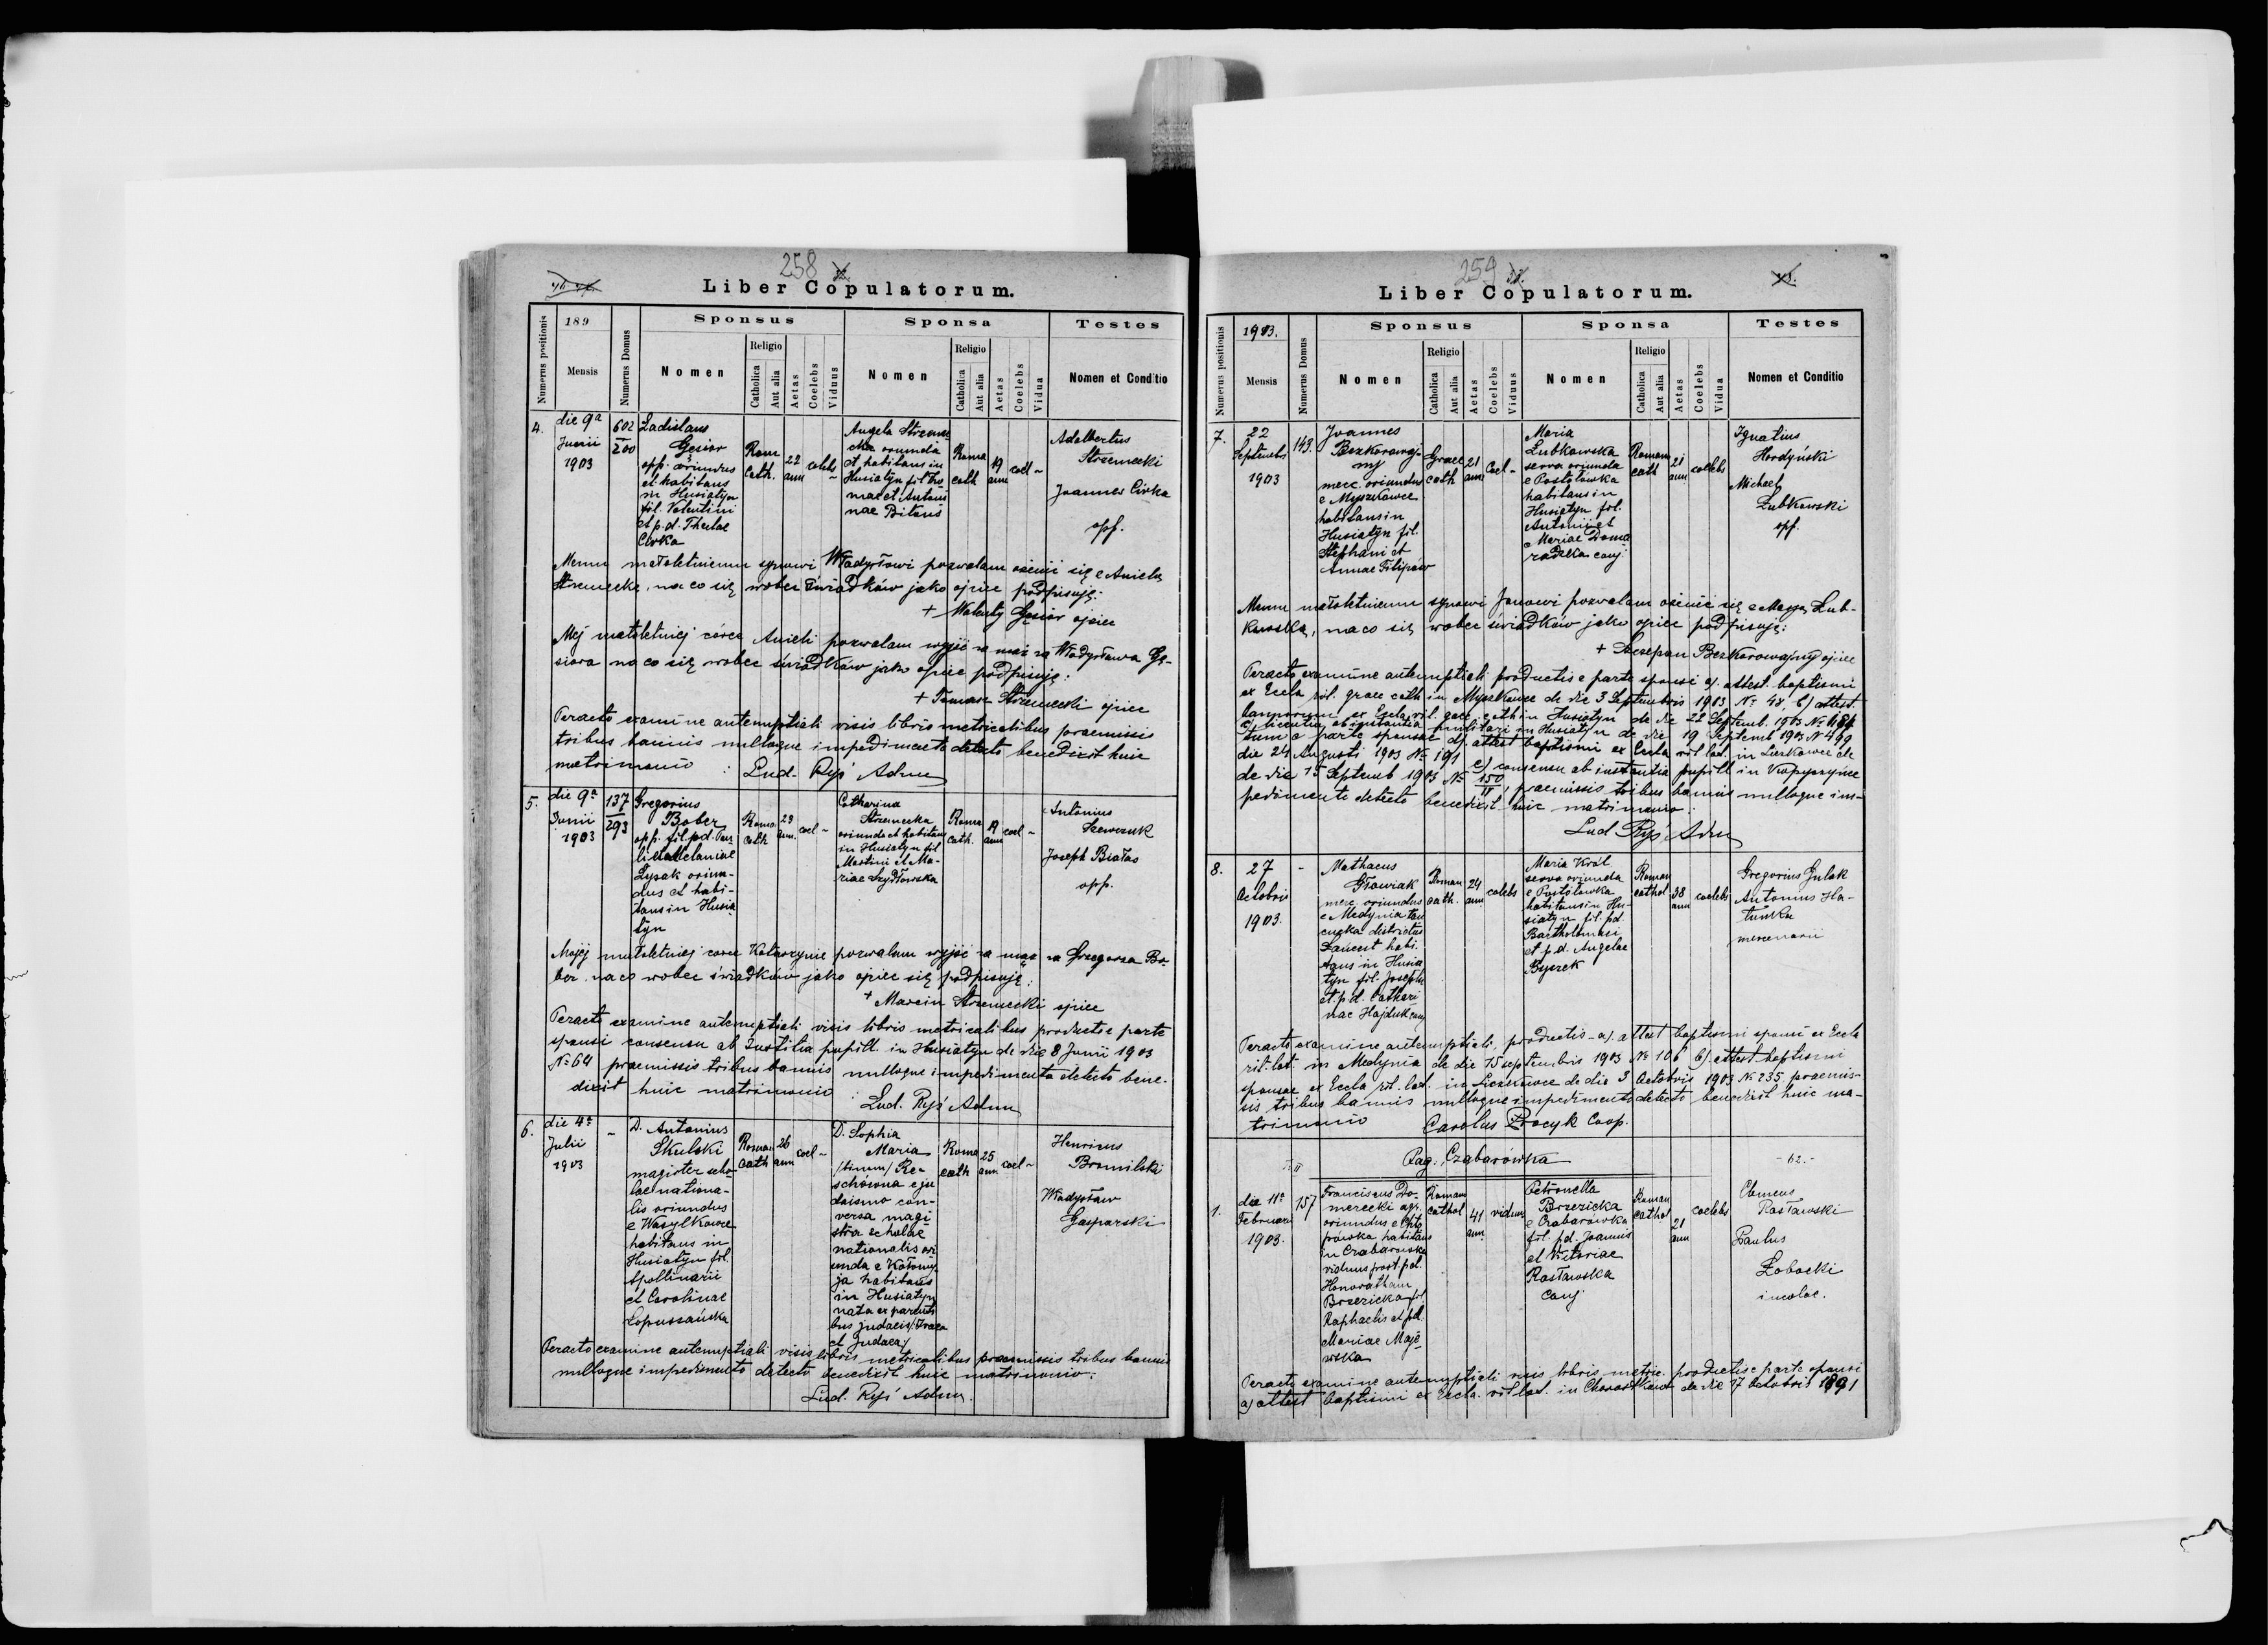 258
Liber Copulatorum.
Numerus positionis
189
Mensis
Numerus Domus
Sponsus
Nomen
Religio
Catholica
Aut alia
Aetas
Coelebs
Viduus
Sponsa
Nomen
Religio
Catholica
Aut alia
Aetas
Coelebs
Vidua
Testes
Nomen et Conditio
4.
die 9a
Junii
1903
602
200
Ladislaus
Gęsior
opp. oriundus
et habitans
in Husiatyn
fil. Valentini
et p.d. Theclae
Cirka
Rom
Cath.
22
ann
coelebs
Angela Strzemec
cka oriunda
et habitans in
Husiatyn fil Tho
mae et Anton
nae Bitous
Roma
cath
19
ann
coel ~
Adalbertus
Strzemecki
Joannes Cirka
opp.
Memu małoletniemu synowi Władysłowi pozwalam ożenić się z Anielą
Strzemecką, na co się wobec świadków jako ojciec podpisuję:
+ Walenty Gęsior ojciec
Mej małoletniej córce Anieli pozwalam wyjść za mąż za Władysława Gę-
siora na co się wobec świadków jako ojciec podpisuję:
+ Tomasz Strzemecki ojciec
Peracto examine antenuptiali visis libris metricalibus praemissis
tribus bannis nulloque impedimento detecto benedixit huic
matrimonio : Lud. Ryś Adm
5.
die 9a
Junii
1903
137
293
Gregorius
Bober
opp. fil. p.d. Pau-
li et Melaniae
Lysak oriun-
dus et habi-
tans in Husia
tyn
Roma
cath
23
ann.
coel ~
Catharina
Strzemecka
oriunda et habitans
in Husiatyn fil
Martini et Ma-
riae Szydłowska
Roma
cath.
19
ann
coel ~
Antonius
Szewczuk
Joseph Białas
opp.
Mojej małoletniej corce Katarzynie pozwalam wyjść za mąż za Grzegorza Bo-
bra. na co wobec świadków jako ojciec się podpisuję:
+ Marcin Strzemecki ojciec
Peracto examine antenuptiali visis libris metricalibus producto e parte
sponsi consensu ab Justitia pupill. in Husiatyn de die 8 Junii 1903
No 64 praemissis tribus bannis nulloque impedimento detecto bene-
dixit huic matrimonio :
Lud. Ryś Adm
6.
die 4a
Julii
1903
~
D. Antonius
Skulski
magister scho-
lae nationa-
lis oriundus
e Wasylkowce
habitans in
Husiatyn fil.
Apollinarii
et Carolinae
Łopuszańska
Roman
Cath
26
ann
coel ~
D. Sophia
Maria
/binum/ Re-
schówna e ju
daismo con-
versa magi-
stra scholae
nationalis ori
unda e Kołomy
ja habitans
in Husiatyn
nata ex parenti
bus judaeis
et Judaea/
Roma
cath
25
ann
coel ~
Henricus
Bromilski
Władysław
Gasparski
Peracto examine antenuptiali visis libris metricalibus praemissis tribus bannis
nulloque impedimento detecto benedixit huic matrimonio:
Lud. Ryś Adm.
259
Liber Copulatorum.
Numerus positionis
1903.
Mensis
Numerus Domus
Sponsus
Nomen
Religio
Catholica
Aut alia
Aetas
Coelebs
Viduus
Sponsa
Nomen
Religio
Catholica
Aut alia
Aetas
Coelebs
Vidua
Testes
Nomen et Conditio
7.
22
Septembr
1903
143.
Joannes
Bezkorowaj-
ny
merc. oriundus
e Myszkowce
habitans in
Husiatyn fil.
Stephani et
Annae Filipów
Graec
cath
21
ann
Coel ~
Maria
Lubkowska
serva oriunda
e Postołówka
habitans in
Husiatyn fil.
Antonii et
Mariae Doma
radzka conj
Roman
cath
21
ann
coelebs
Ignatius
Hordyński
Michael
Lubkowski
opp.
Memu małoletniemu synowi Janowi pozwalam ożenić się z Maryą Lub-
kowską, na co się wobec świadków jako ojciec podpisuję:
+ Szczepan Bezkorowajny ojciec
Peracto examine antenuptiali productis e parte sponsi a). attest. baptismi
ex Eccla rit. graec cath in Myszkowce de die 3 Septembris 1903 No 48. b) attest
bannorum ex Eccla rit. graec cath in Husiatyn de die 22 Septemb. 1903 No 484
in Husiatyn de die 19 Septemb 1903 No 499
tum e parte sponsae d). attest baptismi ex Eccla rit lat. in Liczkowce de
die 24 Augusti 1903 No 191 e) consensu ab instantia pupill in Kopyczyńce
de die 15 Septemb 1903 No 150/II, praemissis tribus bannis nulloque im-
pedimento detecto benedixit huic matrimonio:
Lud Ryś Adm
8.
27
Octobris
1903.
-
Mathaeus
Głowiak
merc. oriundus
e Medynia łań
cucka districtus
Łańcut habi-
tans in Husia
tyn fil. Josephi
et p.d. Cathari
nae Hajduk conj
Roman
cath.
24
ann
coelebs
Maria Król
serva oriunda
e Postołówka
habitans in Hu-
siatyn fil. pd.
Bartholomaei
et p.d. Angelae
Byczek
Roman
cathol
38
ann
coelebs
Gregorius Gulak
Antonius Ha-
tunka
mercenarii
Peracto examine antenuptiali, productis a). attest baptismi sponsi ex Eccla
rit. lat. in Medynia de die 15 septembris 1903 No 106 b) attest baptismi
sponsae ex Eccla rit. lat. in Liczkowce de die 3 Octobris 1903 No 235 praemis-
sis tribus bannis nulloque impedimento detecto benedixit huic ma-
trimonio Carolus Procyk Coop.
Pag. Czabarówka
- 62. -
1.
die 11a
Februarii
1903.
157
Franciscus Do-
merecki agr.
oriundus e Chło
pówka habitans
in Czabarówka
viduus post p.d.
Honoratham
Brzezicka fil
Raphaelis et p.d.
Mariae Maje
wska
Roman
cathol
41
ann.
viduus
Petronella
Brzezicka
e Czabarówka
fil. p.d. Joannis
et Victoriae
Rosławska
conj
Roman
cathol
21
ann
coelebs
Clemens
Rosławski
Paulus
Łobocki
incolae.
Peracto examine antenuptiali visis libris metric. productis e parte sponsi
a) attest baptismi ex Eccla. rit lat. in Chorostków de die 17 Octobris 1891